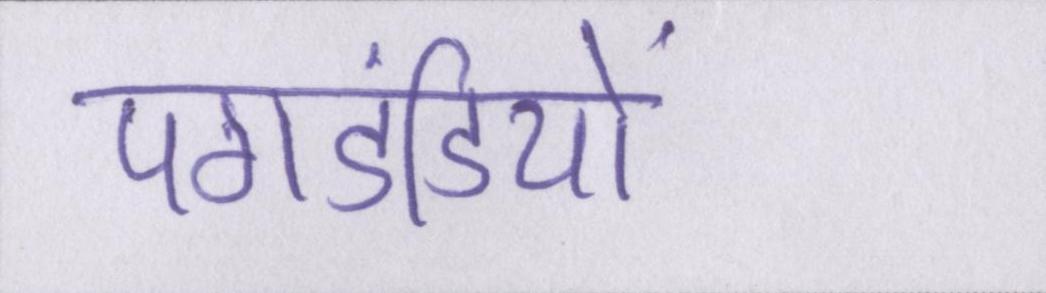 पगडंडियों